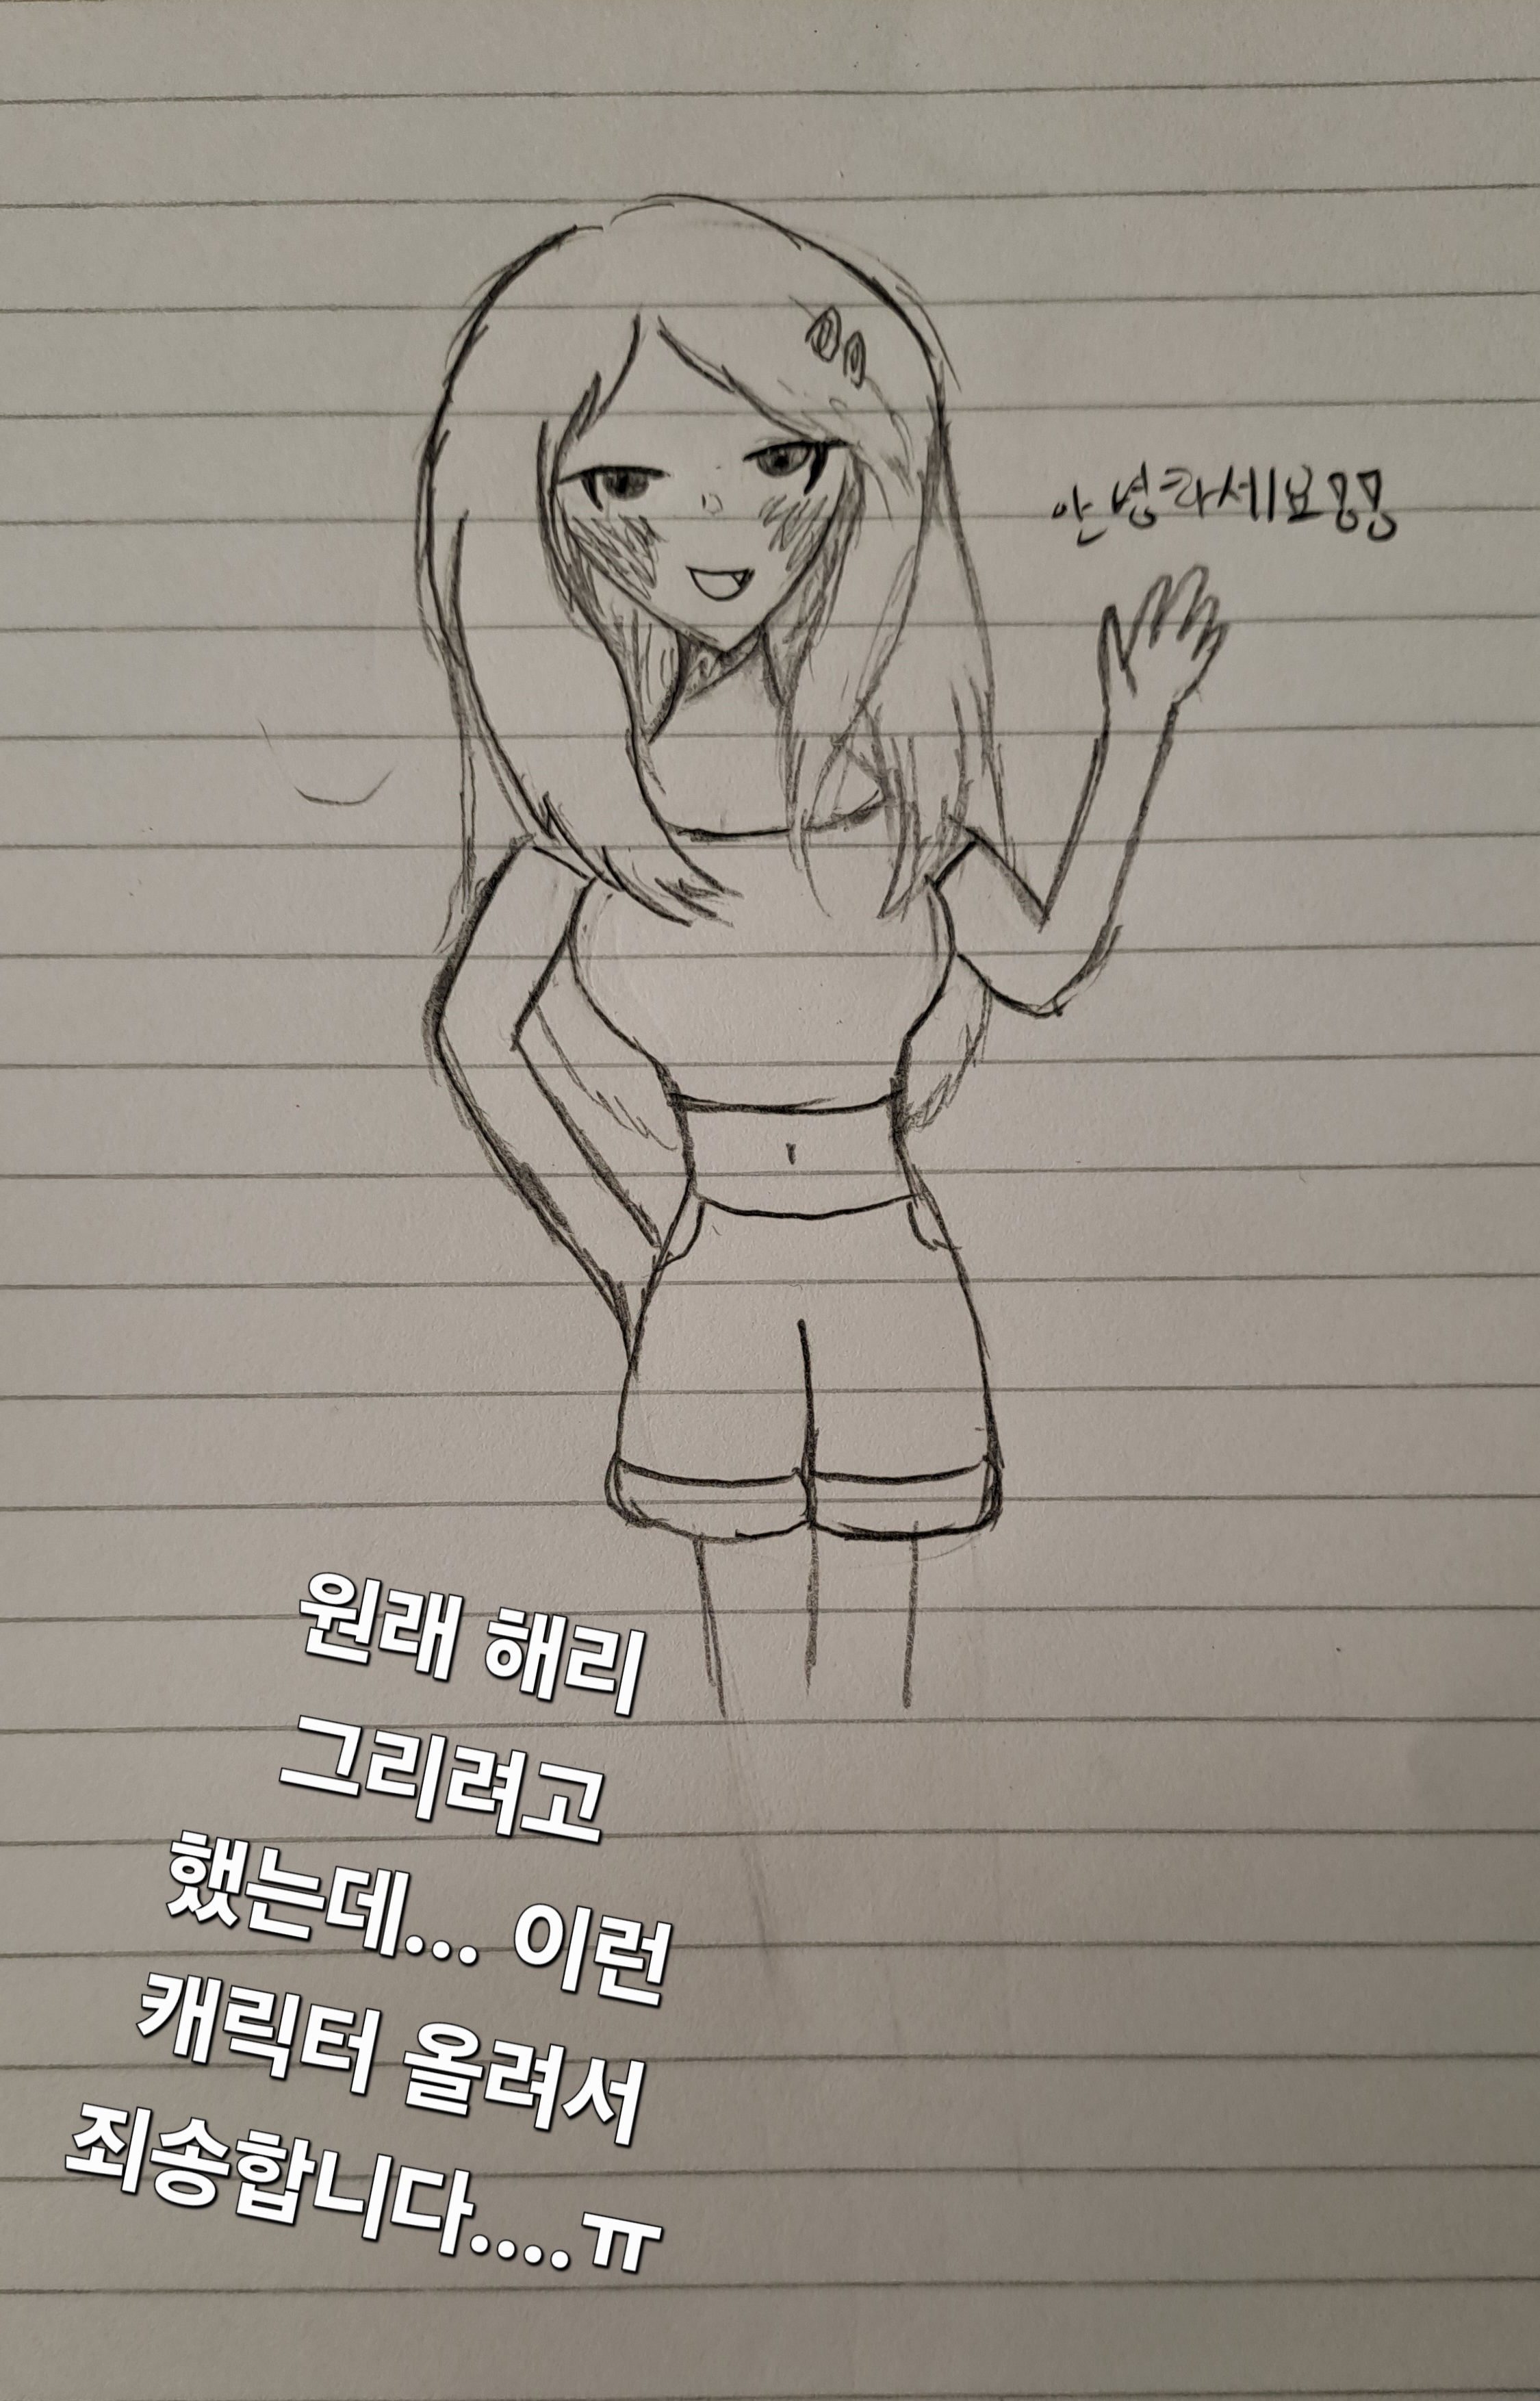 안녕하세요!!
원래 해리
그리려고
했는데... 이런
캐릭터 올려서
죄송합니다....ㅠ